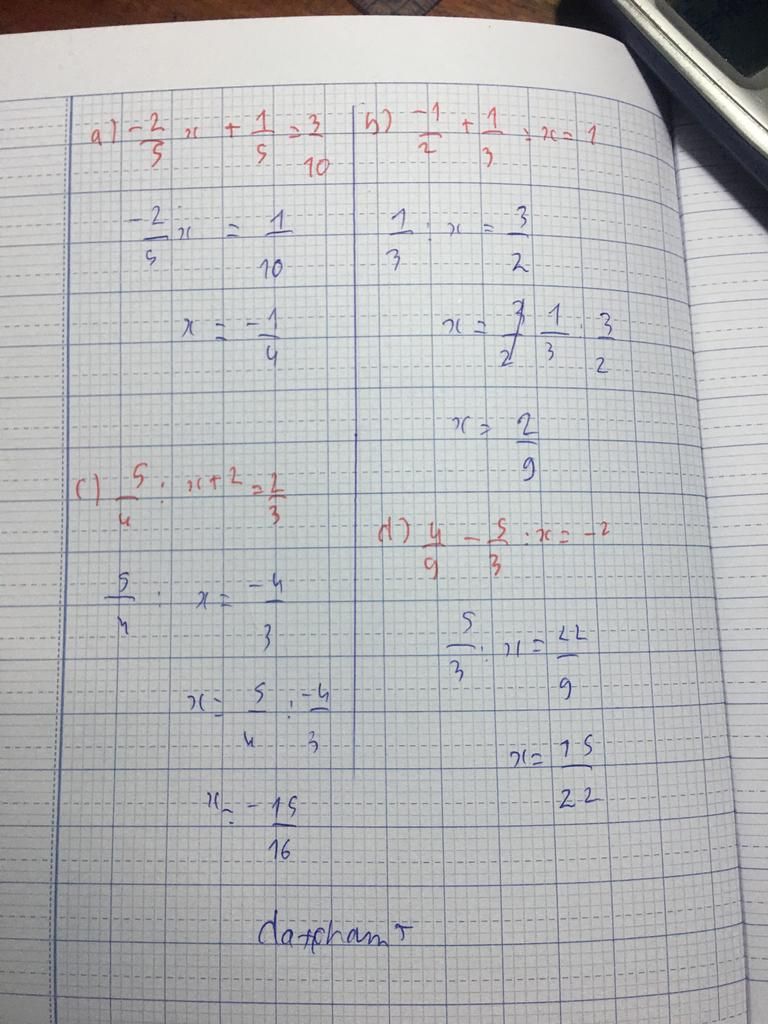 a) -2/5 x + 1/5 = 3/10
-2/5 x = 1/10
x = -1/4
b) -1/2 + 1/3 : x = 1
1/3 : x = 3/2
x = 1/3 : 3/2
x = 2/9
c) 5/4 : x + 2 = 2/3
5/4 : x = -4/3
x = 5/4 : -4/3
x = -15/16
d) 4/9 - 5/3 : x = -2
5/3 : x = 22/9
x = 15/22